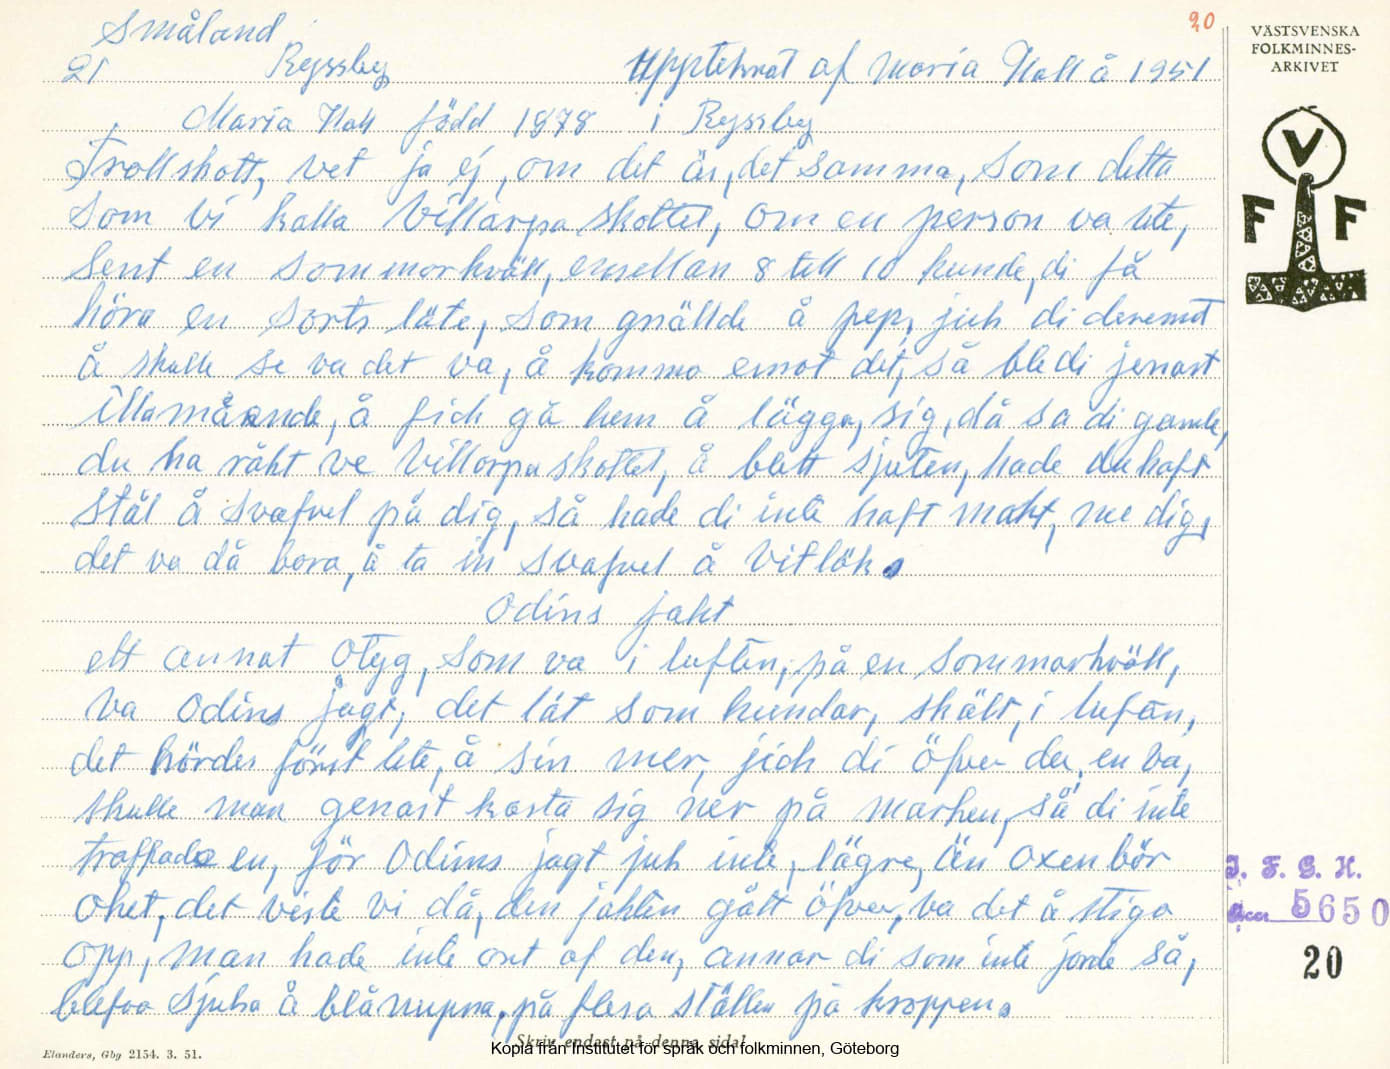 20
Småland
21 Ryssby Uppteknat af Maria Hall å 1951
Maria Hall född 1878 i Ryssby
Trollskott, vet ja ej, om det är, det samma, som detta
som vi kalla Villarpaskottet, om en person va ute,
sent en sommorkväll, emellan 8 till 10 kunde, di få
höra en sorts läte, som gnällde å pep, jick di deremot
å skulle se va det va, å komma emot det, så ble di jenast
illamåande, å fick gå hem å lägga, sig, då sa di gamle,
du ha råkt ve Villorpaskottet, å blett sjuten, hade du haft
stål å svafvel på dig, så hade di inte haft makt, me dig,
det va då bara, å ta in svafvel å Vitlök.
Odins jakt
ett annat otyg, som va i luften, på en sommarkväll,
va Odins jagt, det lät som hundar, skält, i luften,
det hördes först lite, å sin mer, jick di öfver der, en va,
skulle man genast kasta sig ner på marken, så di inte
traffade en, för Odins jagt jick inte, lägre, än oxen bör
oket, det viste vi då, den jakten gått öfver, va det å stiga
opp, man hade inte ont af den, annar di som inte jorde så,
blefvo sjuka å blånupna, på flera ställen på kroppen.
VÄSTSVENSKA
FOLKMINNES-
ARKIVET
V
F F
I. F. G. H.
Acc 5650
20
Skriv endast på denna sida!
Elanders, Gbg 2154. 3. 51.
Kopia från Institutet för språk och folkminnen, Göteborg